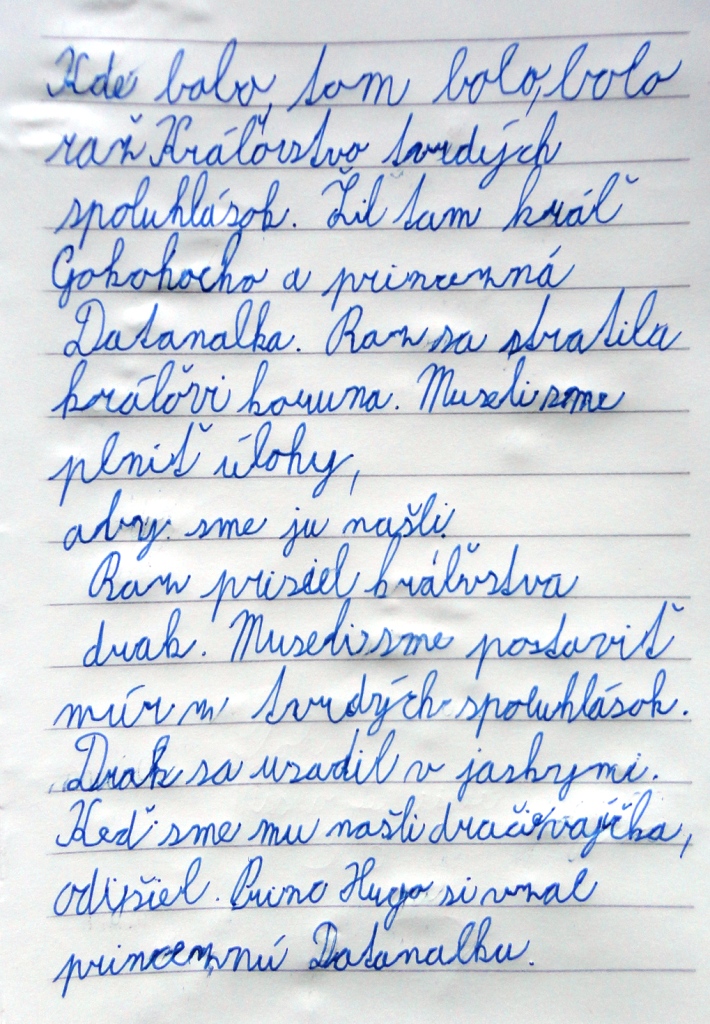 Kde bolo, tam bolo, bolo
raz Kráľovstvo tvrdých
spoluhlások. Žil tam kráľ
Gokohocho a princezná
Datanalka. Raz sa stratila
kráľovi koruna. Museli sme
plniť úlohy,
aby sme ju našli.
Raz prišiel kráľovstva
drak. Museli sme postaviť
múr z tvrdých spoluhlások.
Drak sa usadil v jaskyni.
Keď sme mu našli dračie vajíčka,
odišiel. Princ Hugo si vzal
princeznú Datanalku.